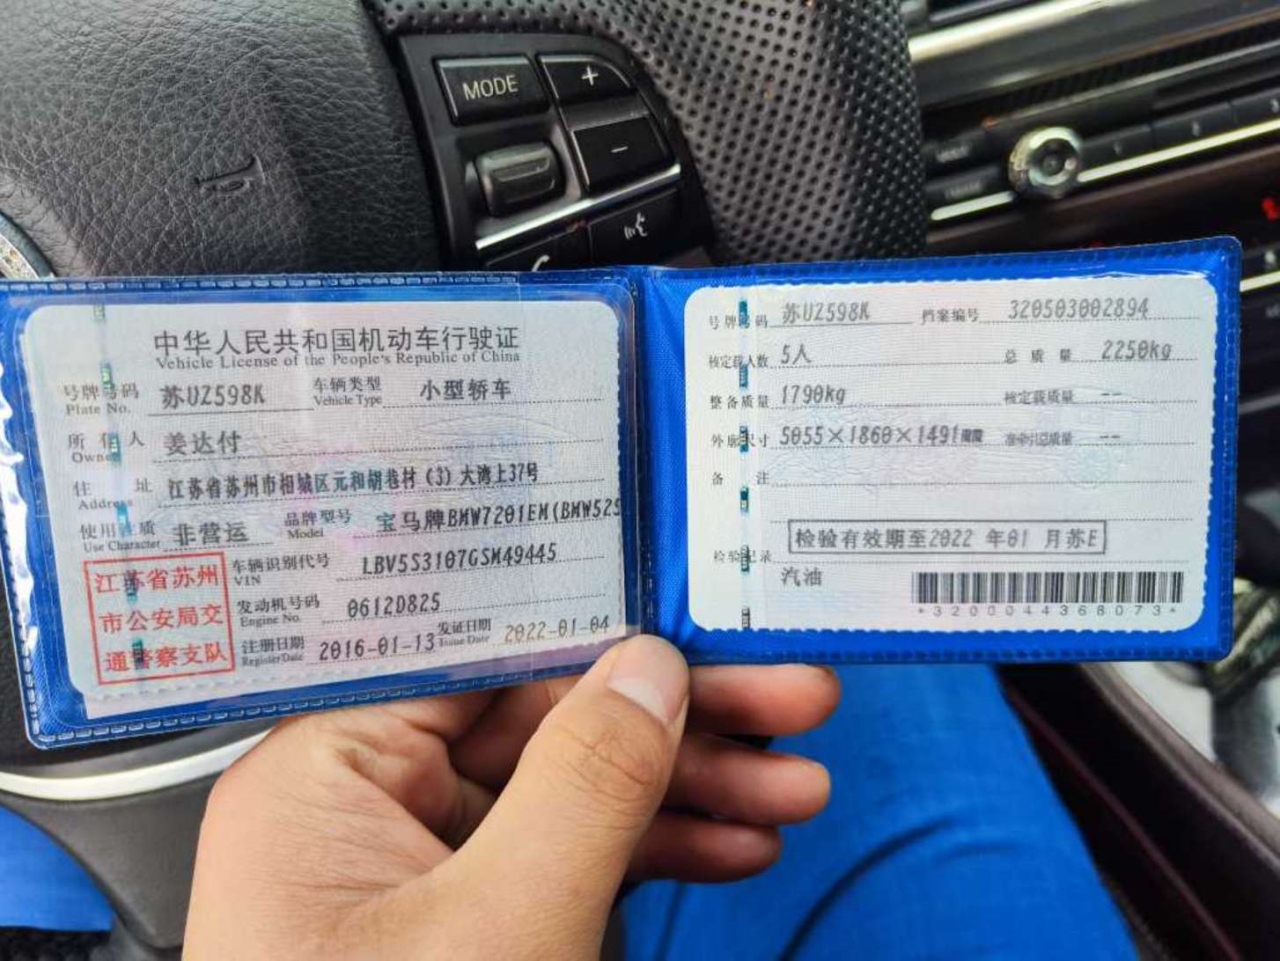 MODE
+
-
中华人民共和国机动车行驶证
Vehicle License of the People's Republic of China
号牌号码 苏UZ598K 车辆类型 小型轿车
Plate No. Vehicle Type
所有人 姜达付
Owner
住址 江苏省苏州市相城区元和胡巷村(3)大湾上37号
Address
使用性质 非营运 品牌型号 宝马牌BMW7201EM(BMW525
Use Character Model
江苏省苏州
市公安局交
通警察支队
车辆识别代号 LBV5S3107GSM49445
VIN
发动机号码 0612D825
Engine No.
注册日期 2016-01-13 发证日期 2022-01-04
Register Date Issue Date
号牌号码 苏UZ598K 档案编号 320503002894
核定载人数 5人 总质量 2250kg
整备质量 1790kg 核定载质量 --
外廓尺寸 5055×1860×1491 准牵引总质量 --
备注
检验记录 检验有效期至2022年01月苏E
汽油
*3200044368073*